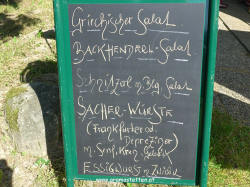 Griechischer Salat
BACKHENDERL-Salat
Schnitzerl m. Blg. Salat
SACHER-WÜRSTL
(Frankfurter od.
Debreziner)
m. Senf, Kren, Gebäck
ESSIGWURST m. Zwiebel
www.aromastoffen.at